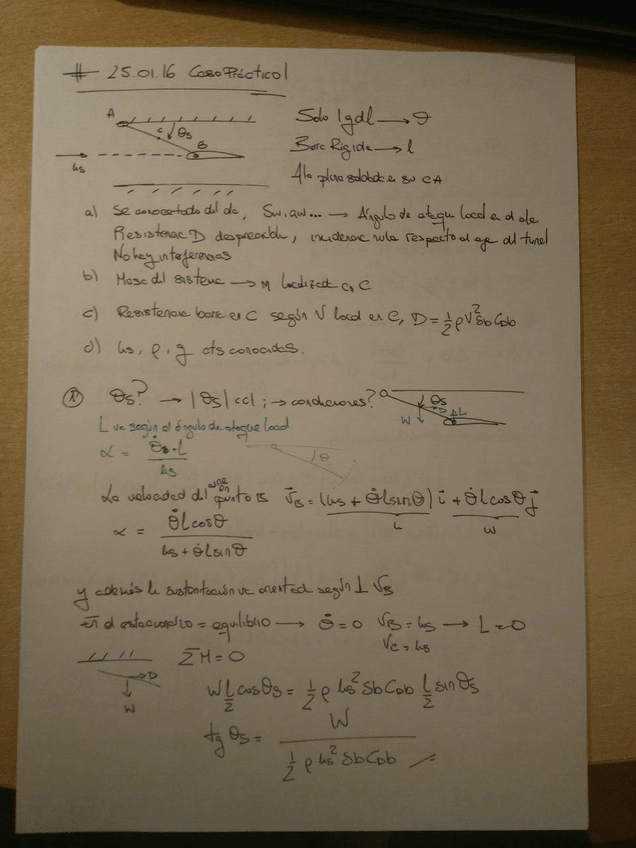 # 25.01.16 Caso Práctico 1
A
Solo 1 gdl → θ
C θs
B
Barra Rígida → l
us
Ala plana soldada en su CA
a) Se conoce todo del ala, Sw, aw... → Ángulo de ataque local en el ala
Resistencia D despreciable, incidencia nula respecto al eje del tunel
No hay interferencias
b) Masa del sistema → M localizada en C
c) Resistencia barra en C según V local en C, D = ½ρV²SbCDb
d) us, ρ, g cts conocidas.
1) θs? → |θs| <<1; → condiciones?
θs
W D L
L va según el ángulo de ataque local
α = θ̇s·L / us
θ
La velocidad del punto B V̄B = (us + θ̇lsinθ) i̅ + θ̇lcosθ j̅
u w
α = θ̇lcosθ / us + θ̇lsinθ
y además la sustentación va orientada según ⊥ VB
En el estacionario = equilibrio → θ̇ = 0 VB = us → L = 0
Vc = us
ΣM = 0
D
W
W l/2 cosθs = ½ρus²SbCDb l/2 sinθs
tg θs = W / ½ρus²SbCDb